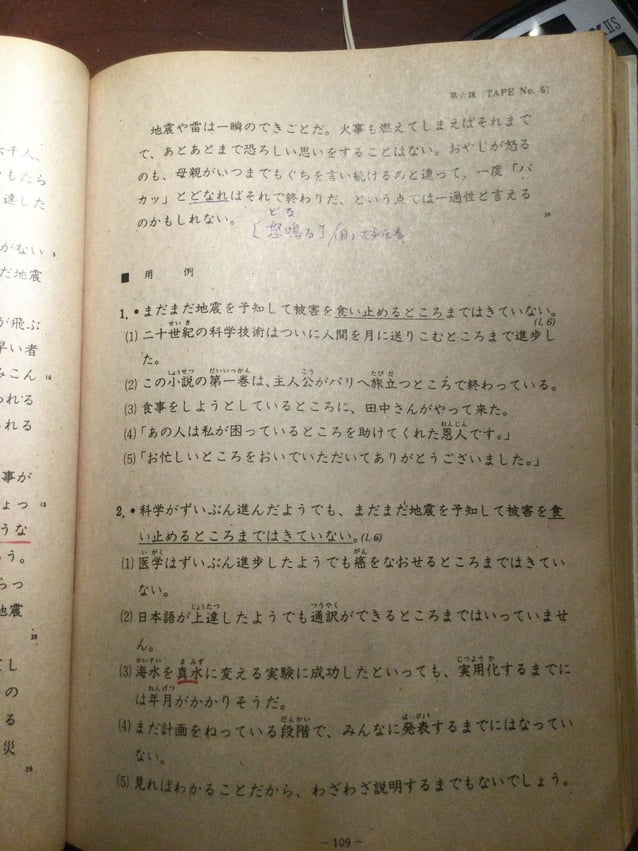 第六課〔TAPE No. 6〕
地震や雷は一瞬のできごとだ。火事も燃えてしまえばそれまで
で、あとあとまで恐ろしい思いをすることはない。おやじが怒る
のも、母親がいつまでもぐちを言い続けるのと違って、一度「バ
カッ」とどなればそれで終わりだ、という点では一過性と言える
のかもしれない。
20
どな
[怒鳴る]
■ 用 例
1. •まだまだ地震を予知して被害を食い止めるところまではきていない。
(L6)
(1) 二十世紀の科学技術はついに人間を月に送りこむところまで進歩し
た。
(2) この小説の第一巻は、主人公がパリへ旅立つところで終わっている。
(3) 食事をしようとしているところに、田中さんがやって来た。
(4) 「あの人は私が困っているところを助けてくれた恩人です。」
(5) 「お忙しいところをおいでいただいてありがとうございました。」
2. •科学がずいぶん進んだようでも、まだまだ地震を予知して被害を食
い止めるところまではきていない。(L6)
(1) 医学はずいぶん進歩したようでも癌をなおせるところまではきてい
ない。
(2) 日本語が上達したようでも通訳ができるところまではいっていませ
ん。
(3) 海水を真水に変える実験に成功したといっても、実用化するまでに
は年月がかかりそうだ。
(4) まだ計画をねっている段階で、みんなに発表するまでにはなってい
ない。
(5) 見ればわかることだから、わざわざ説明するまでもないでしょう。
- 109 -